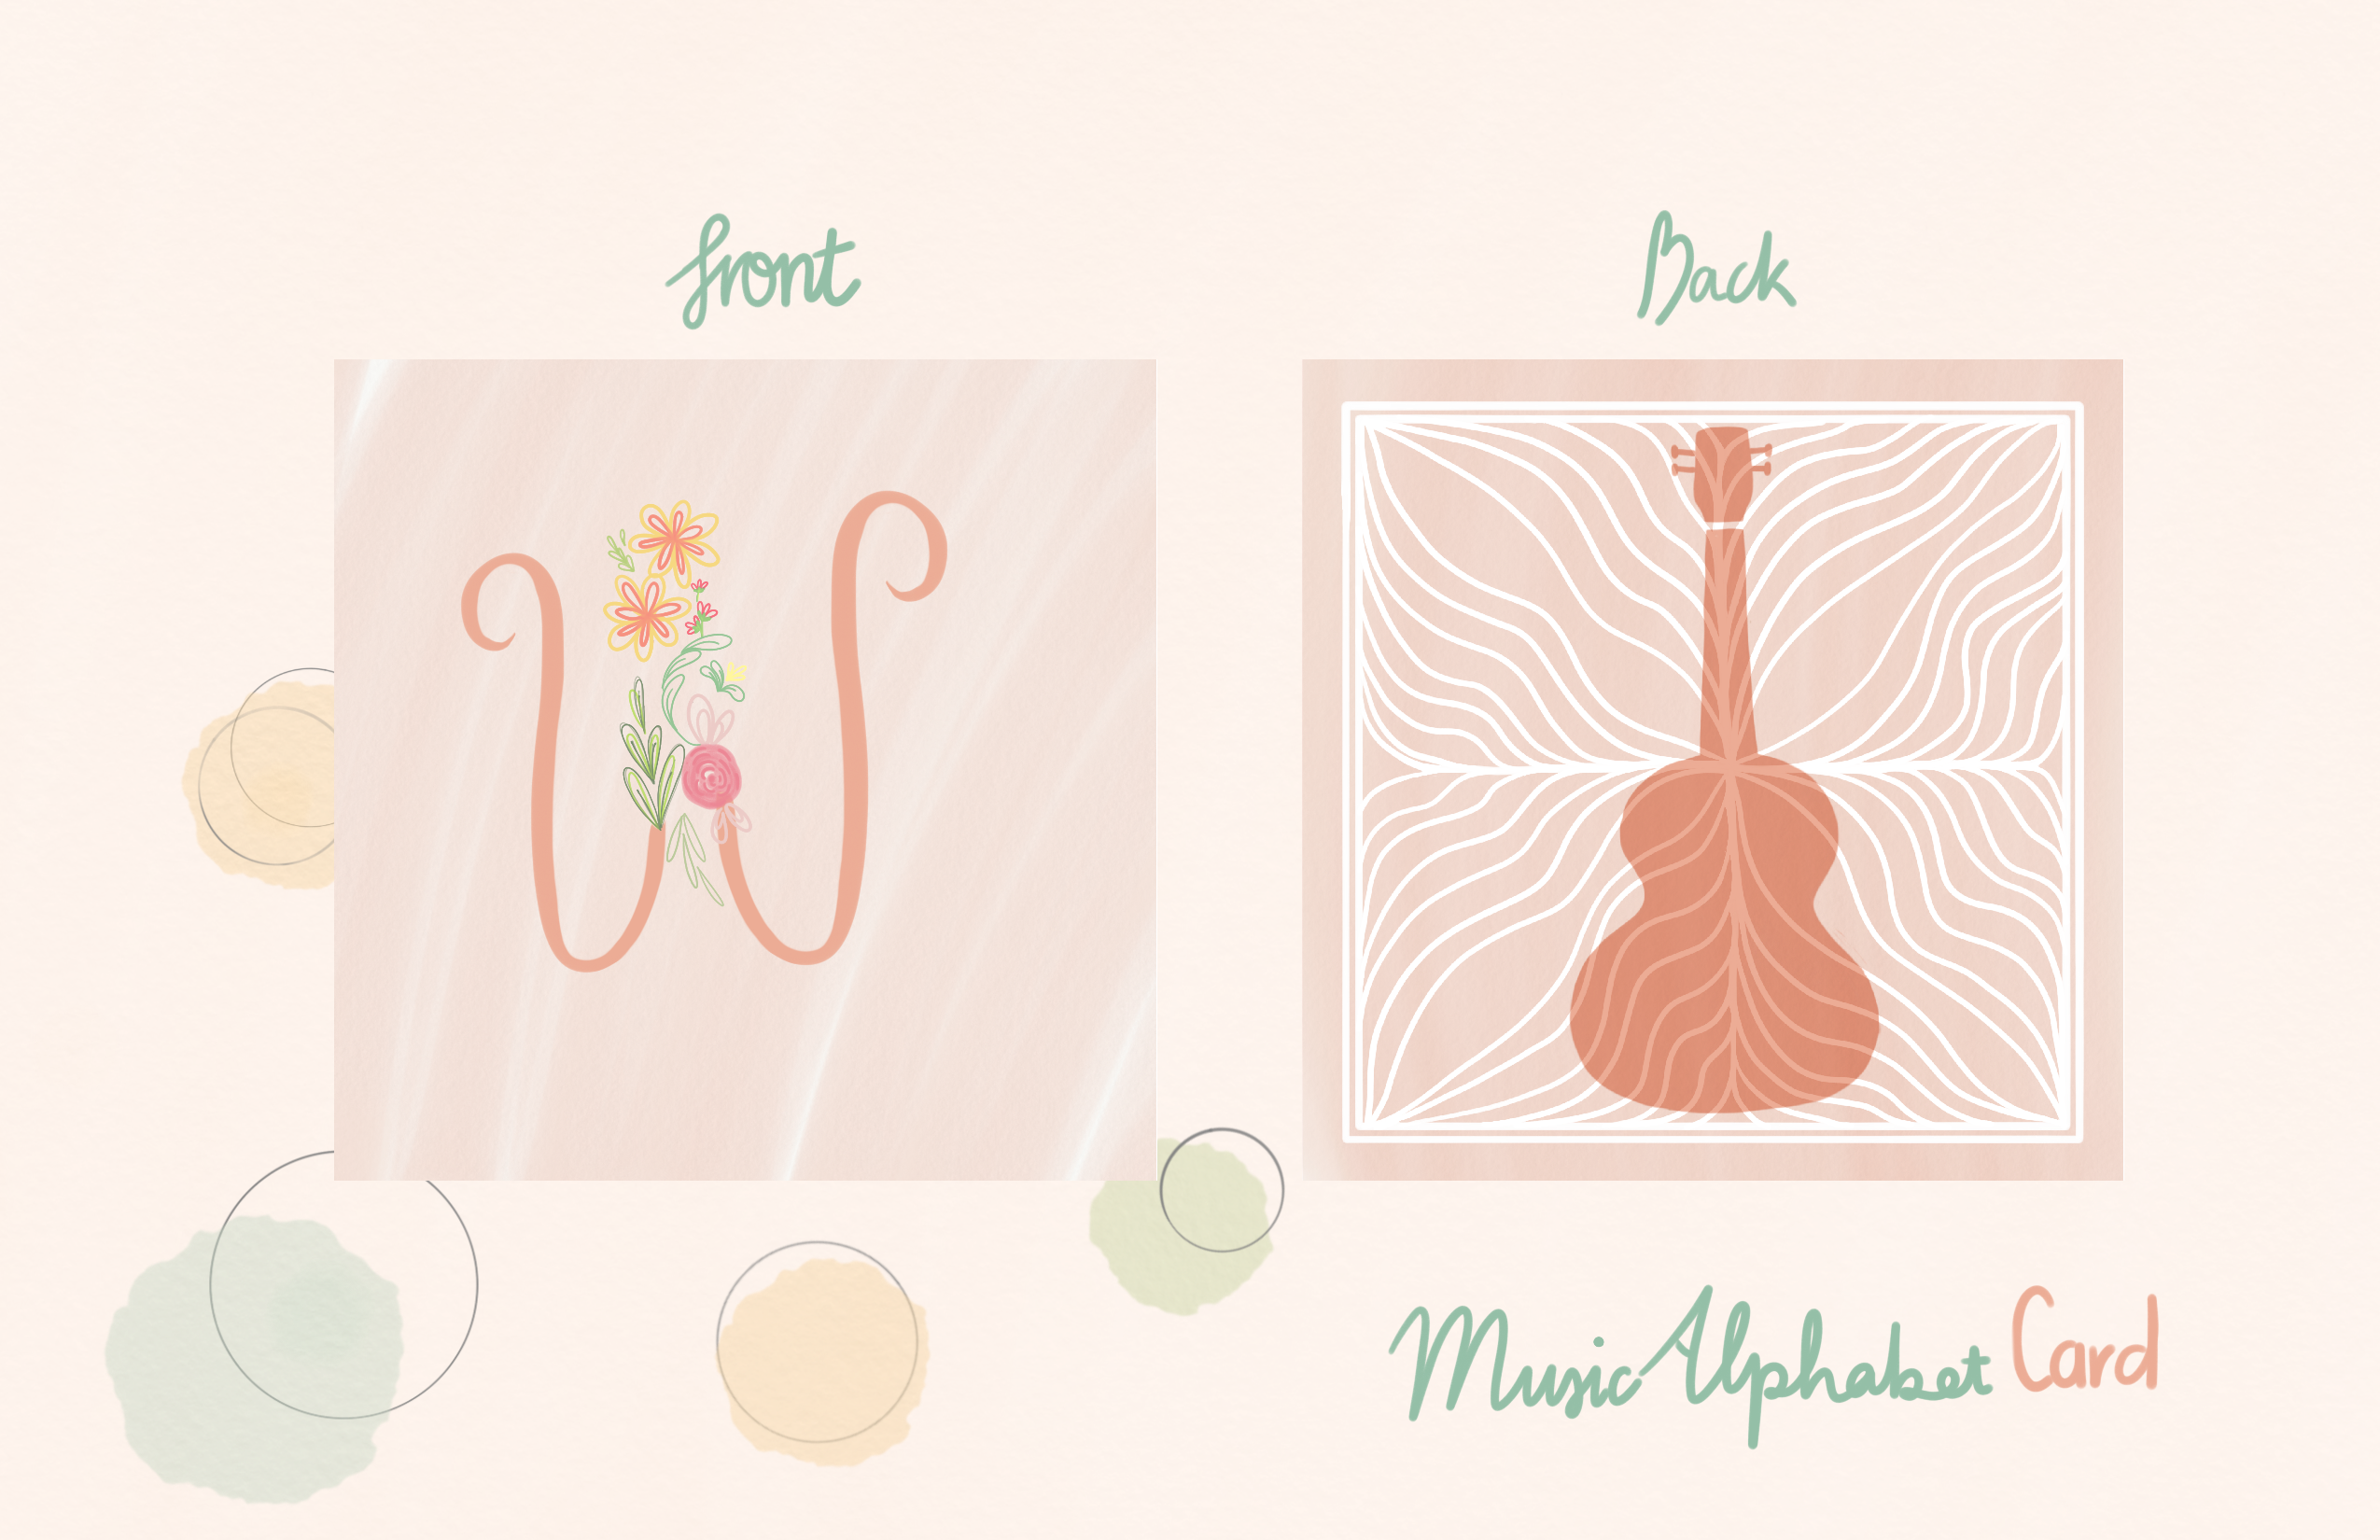 front
Back
W
Music Alphabet Card